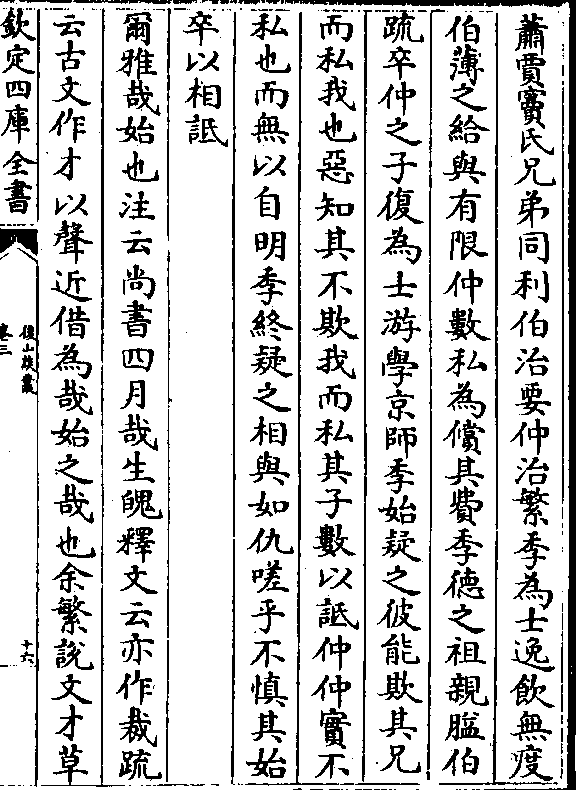 蕭賈竇氏兄弟同利伯治要仲治繁季為士逸飲無度
伯薄之給與有限仲數私為償其費季德之祖親䏰伯
疏卒仲之子復為士游學京師季始疑之彼能欺其兄
而私我也惡知其不欺我而私其子數以詆仲仲實不
私也而無以自明季終疑之相與如仇嗟乎不慎其始
卒以相詆
爾雅哉始也注云尚書四月哉生魄釋文云亦作裁疏
云古文作才以聲近借為哉始之哉也余繁說文才草
欽定四庫全書
後山談叢
卷三
十六